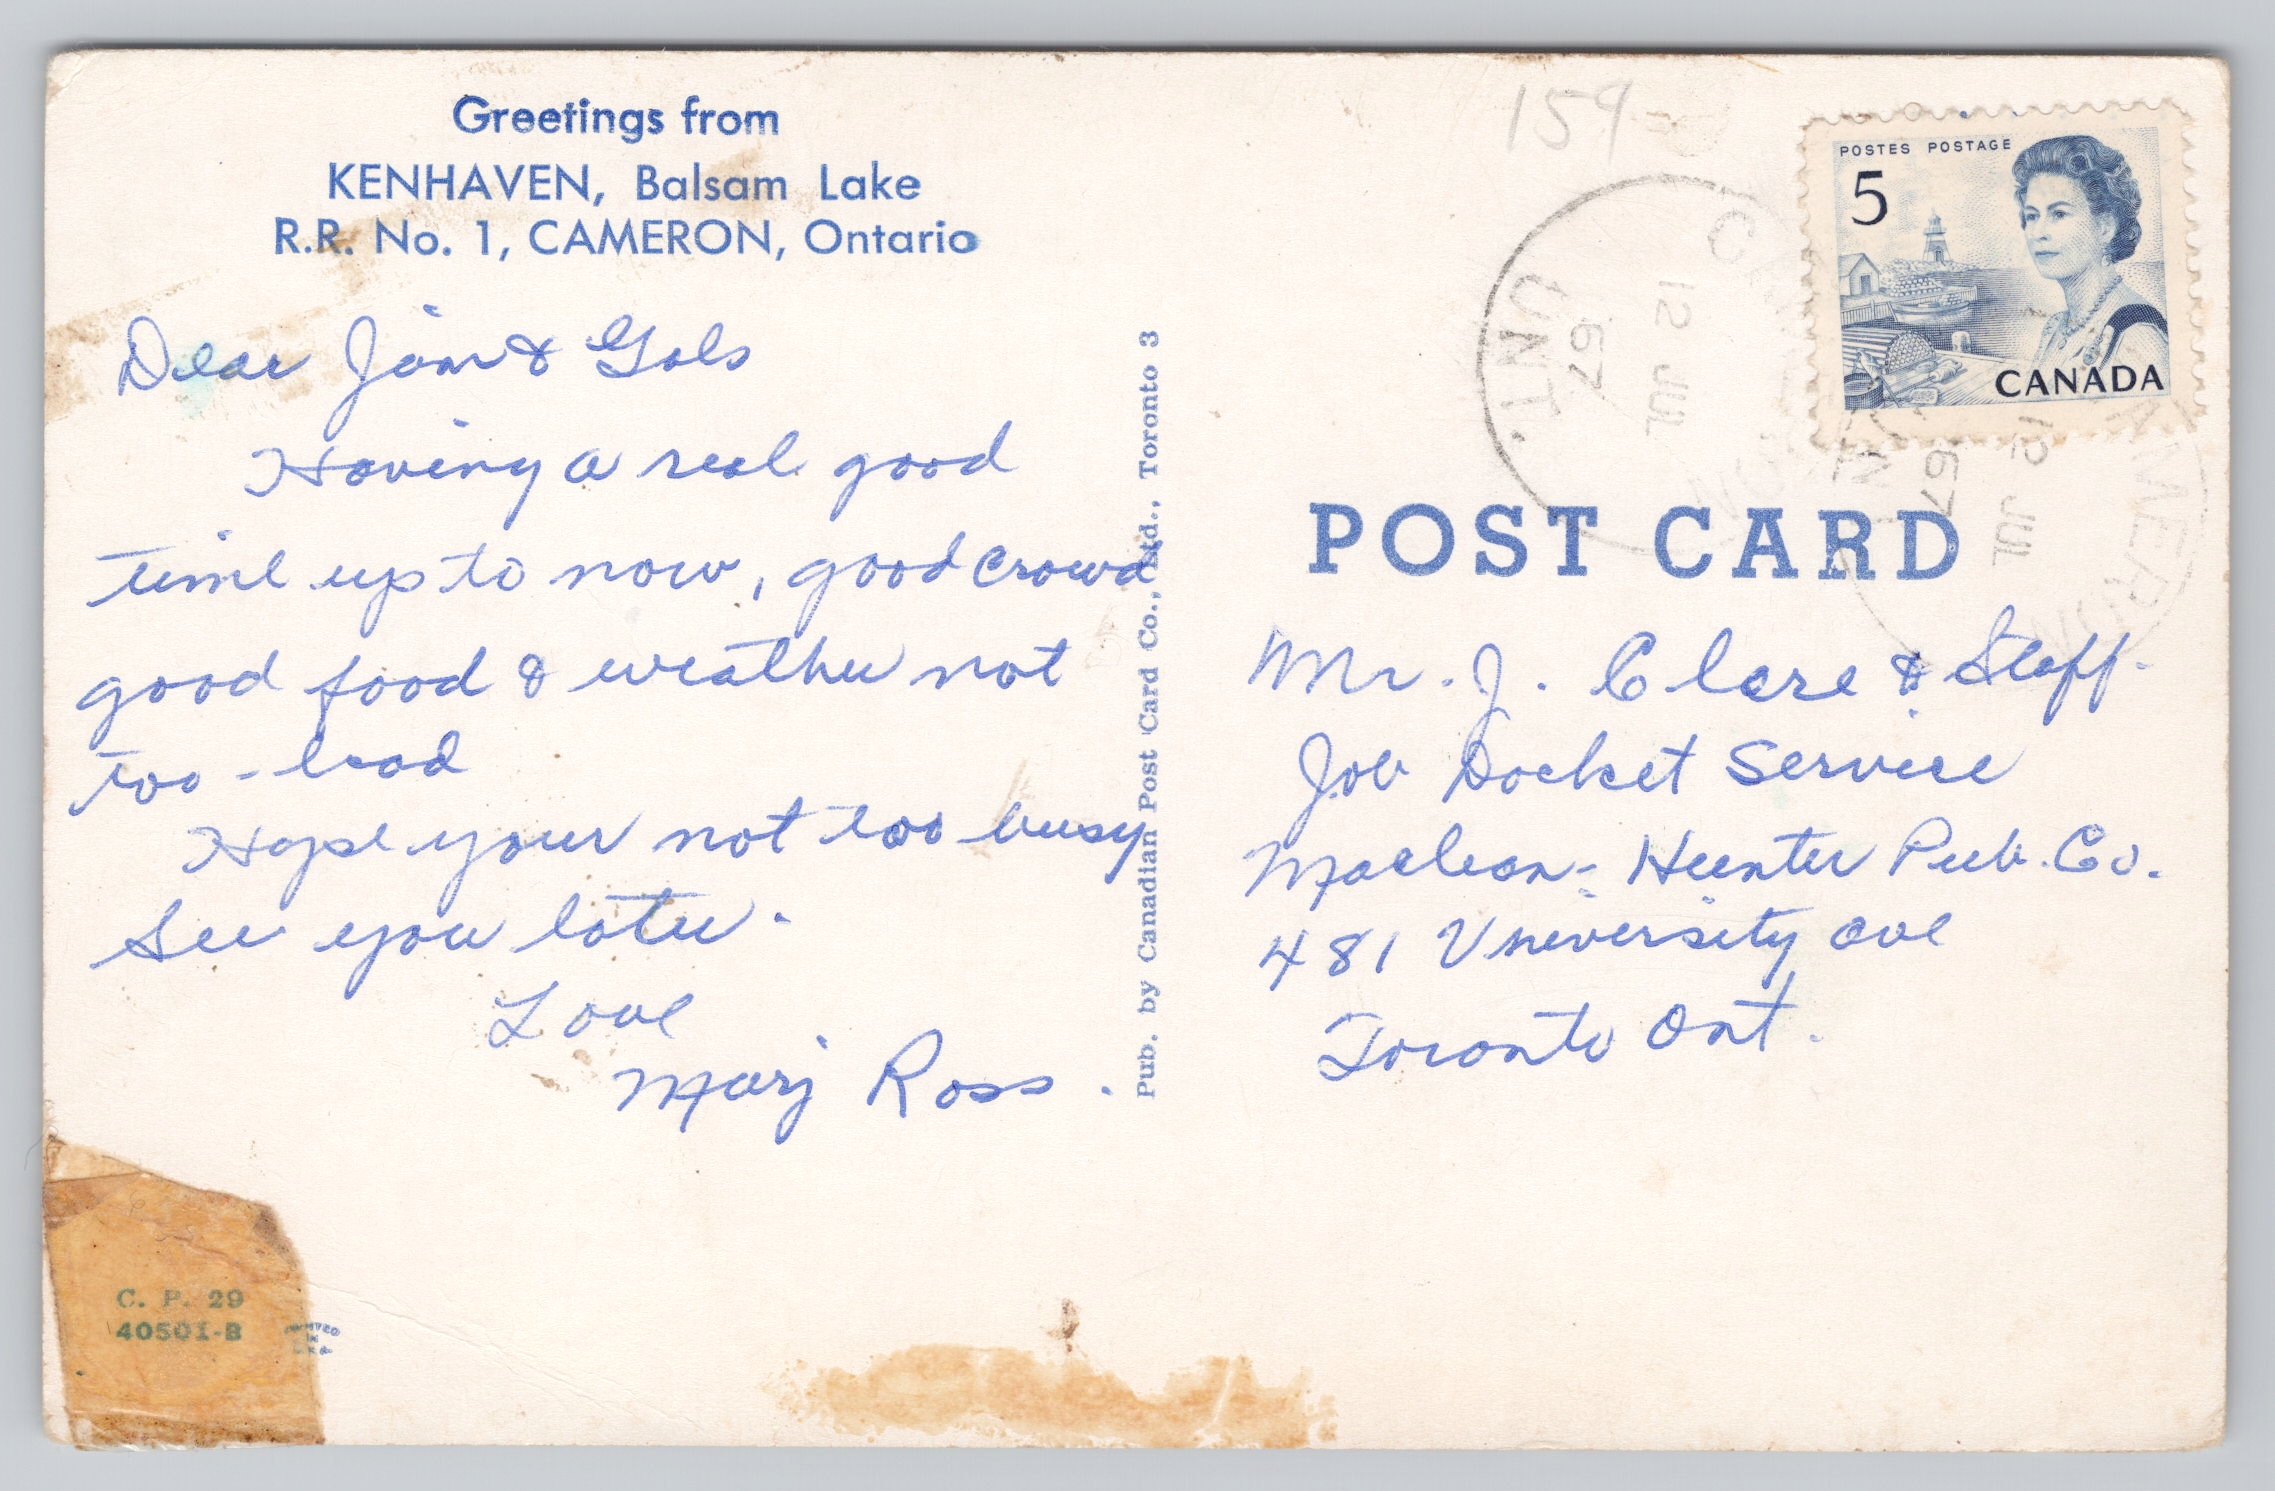 Greetings from
KENHAVEN, Balsam Lake
R.R. No. 1, CAMERON, Ontario
Dear Jim & Gals
Having a real good
time up to now, good crowd
good food & weather not
too-bad
Hope your not too busy
See you later.
Love
Marj Ross.
C. P. 29
40501-B
PRINTED
IN
U.S.A.
Pub. by Canadian Post Card Co., Ltd., Toronto 3
159
CAMERON
12 JUL
67
ONT.
CAMERON
12 JUL
67
ONT.
POSTES POSTAGE
5
CANADA
POST CARD
Mr. J. Clare & Staff.
Job Docket Service
Maclean-Hunter Pub. Co.
481 University ave
Toronto Ont.